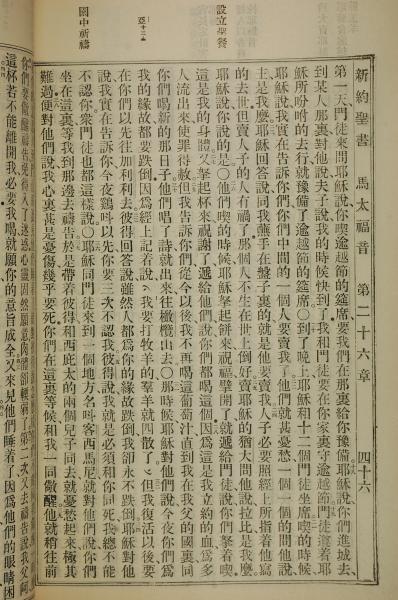 新約聖書 馬太福音 第二十六章 四十六
第一天門徒來問耶穌說你吃逾越節的筵席要我們在那裏給你豫備耶穌說你們進城去
到某人那裏對他說夫子說我的時候快到了我和門徒要在你家裏守逾越節門徒遵着耶
穌所吩咐的去行就豫備了逾越節的筵席○到了晚上耶穌和十二個門徒坐席喫的時候
耶穌說我實在告訴你們你們中間的一個人要賣我了他們就甚憂愁一個一個的問他說
主是我麼耶穌回答說同我蘸手在盤子裏的就是他要賣我人子必要照經上所指着他寫
的去世但賣人子的人有禍了那個人不生在世上倒好賣耶穌的猶大問他說拉比是我麼
耶穌說你說的是○他們喫的時候耶穌拏起餅來祝福擘開了就遞給門徒說你們拏着喫
這是我的身體又拏起杯來祝謝了遞給他們說你們都喝這個因爲這是我立約的血爲多
人流出來使罪得赦我告訴你們從今以後我不再喝這葡萄汁直到我在我父的國裏同
你們喝新的那日子他們唱了詩就出來往橄欖山去○那時候耶穌對他們說今夜你們爲
我的緣故都要跌倒因爲經上記着說我要打牧羊的羣羊就四散了但我復活以後要
在你們以先往加利利去彼得回答說雖然人都爲你的緣故跌倒我卻永不跌倒耶穌對他
說我實在告訴你今夜鷄呌以先你要三次不認我彼得說我就是必須和你同死我總不能
不認你衆門徒也都這樣說○耶穌同門徒來到一個地方名呌客西馬尼就對他們說你們
坐在這裏等我到那邊去禱告於是帶着彼得和西庇太的兩個兒子同去就憂愁起來極其
難過便對他們說我心裏甚是憂傷幾乎要死你們在這裏等候和我一同儆醒他就稍往前
你們要儆醒禱告免得入了迷惑心靈固然願意肉體卻輭弱了第二次又去禱告說我父阿
這杯若不能離開我必要我喝就願你的意旨成全又來見他們睡着了因爲他們的眼睛困
設立聖餐
園中祈禱